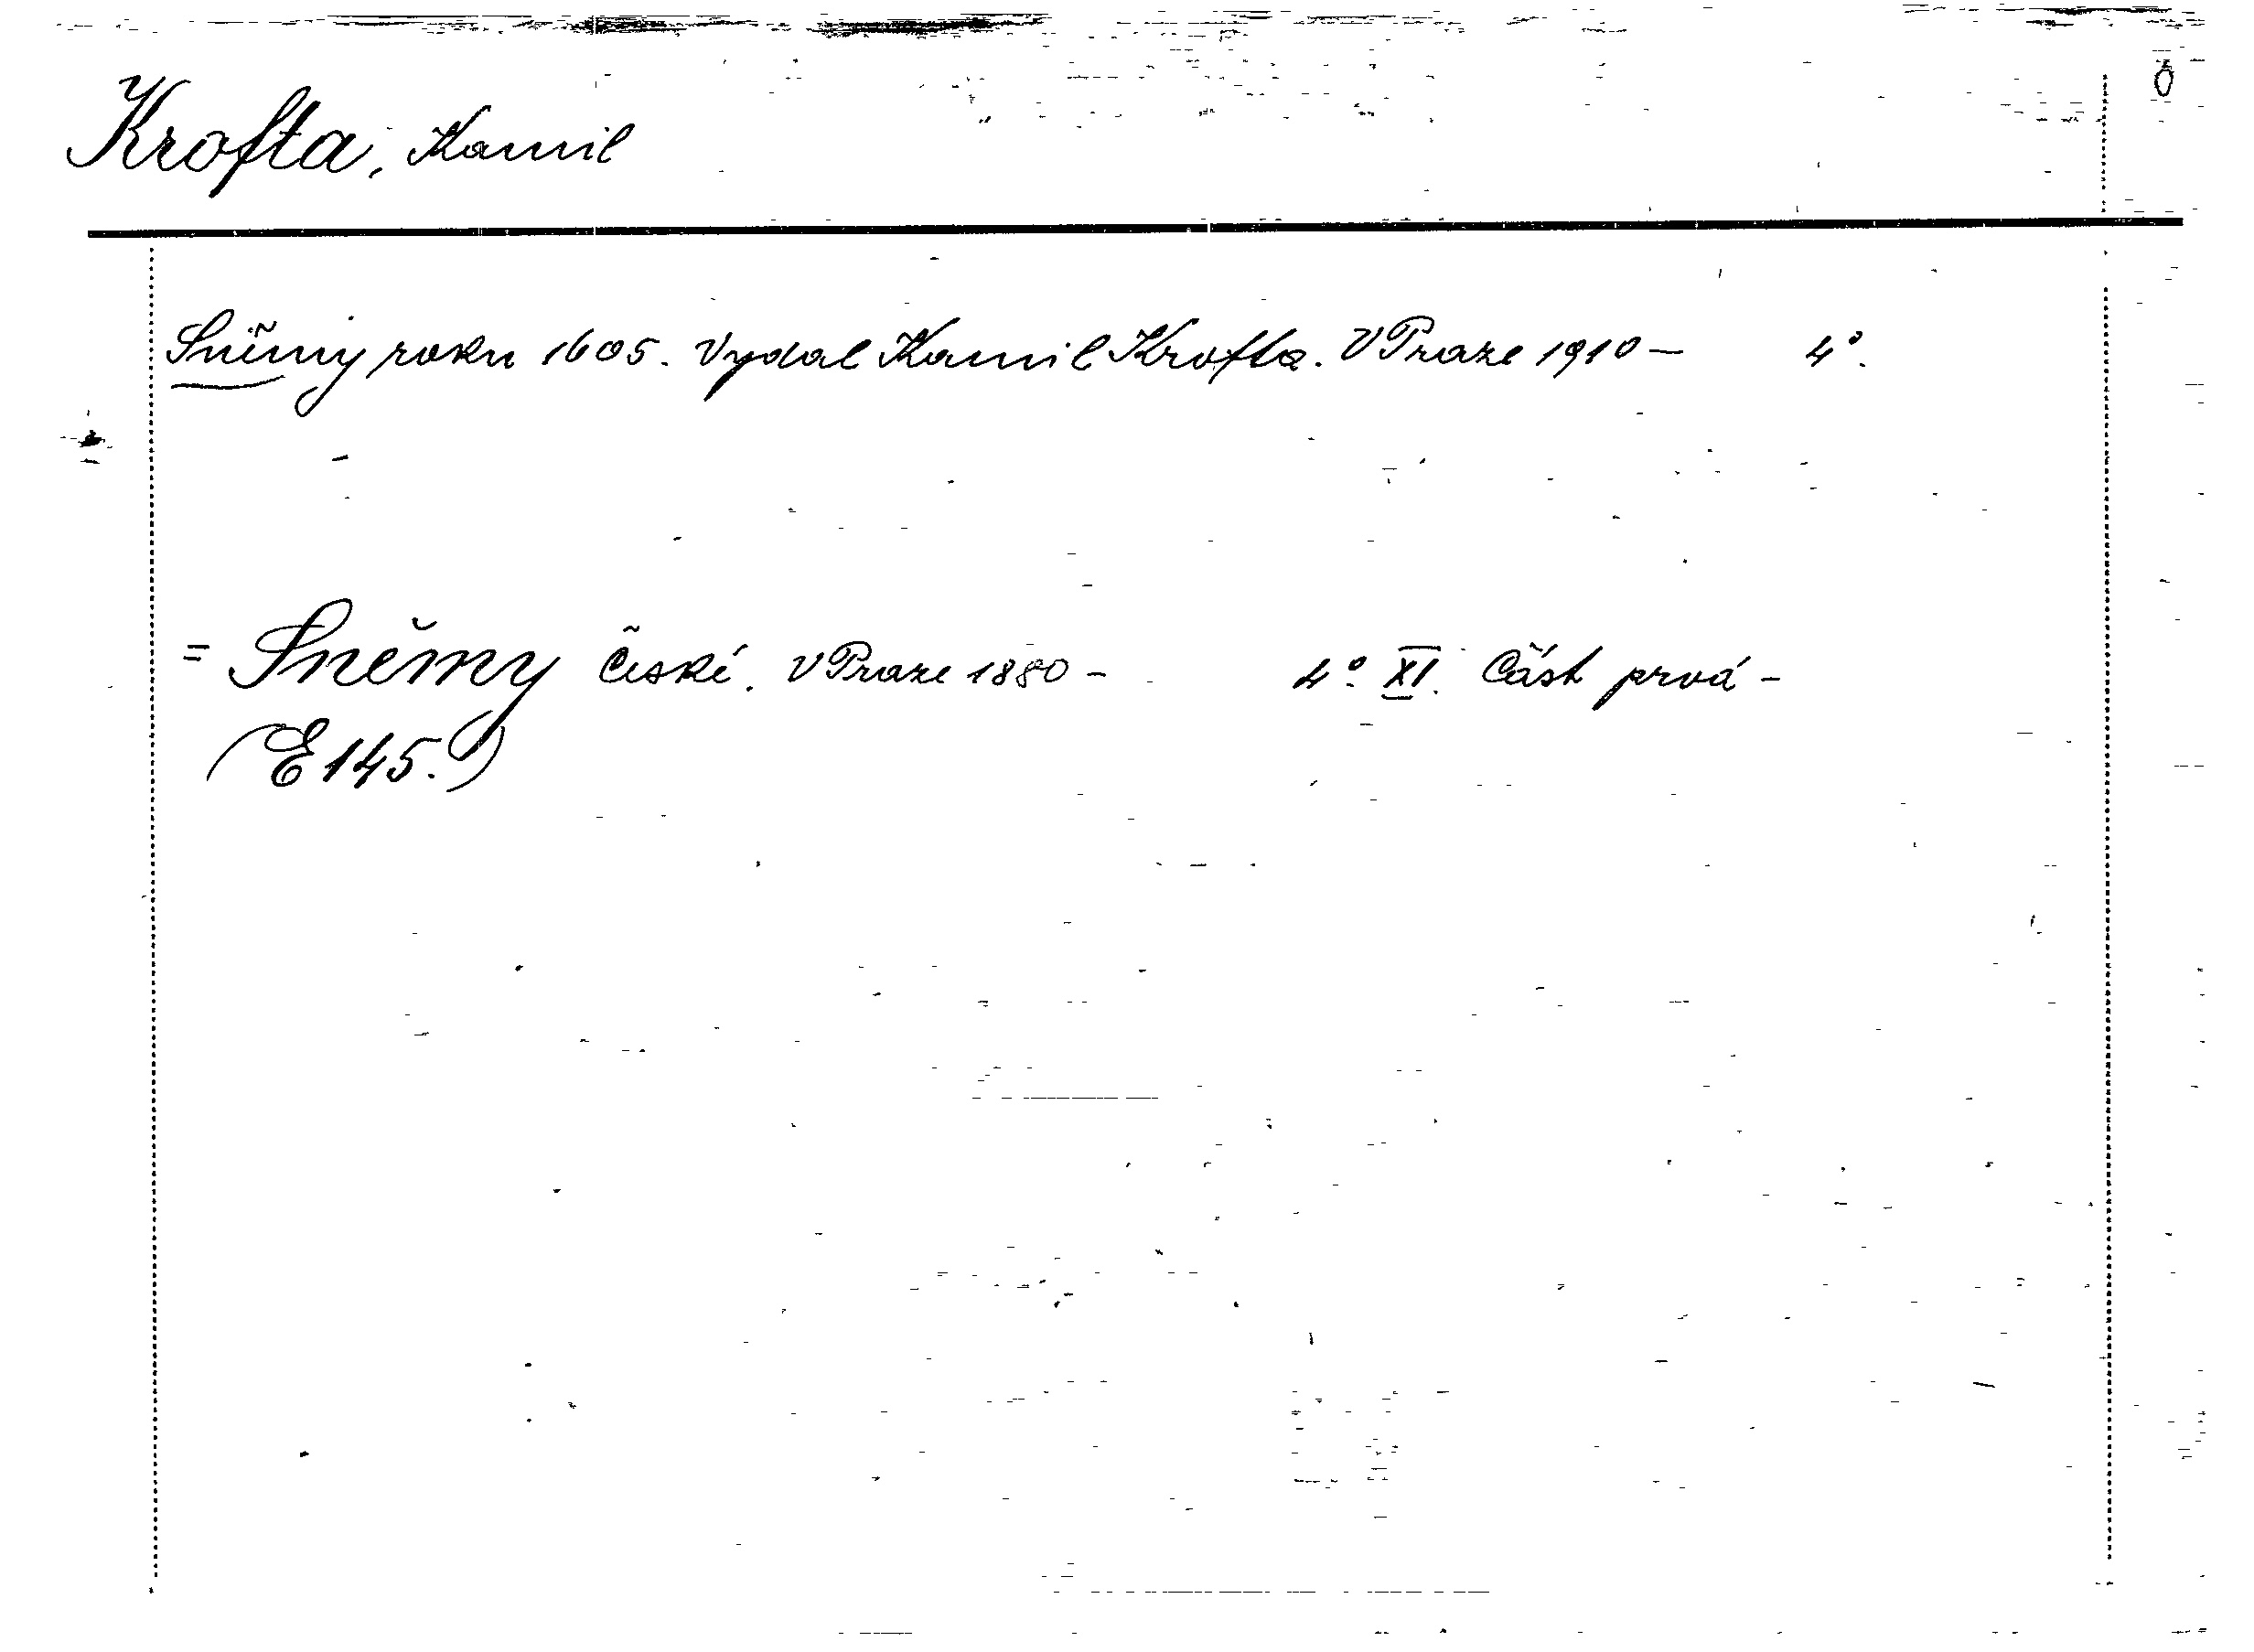 Krofta, Kamil
Sněmy roku 1605. Vydal Kamil Krofta. V Praze 1910 — 4°.
= Sněmy české. V Praze 1880 - 4° XI. Část prvá -
(E 145.)